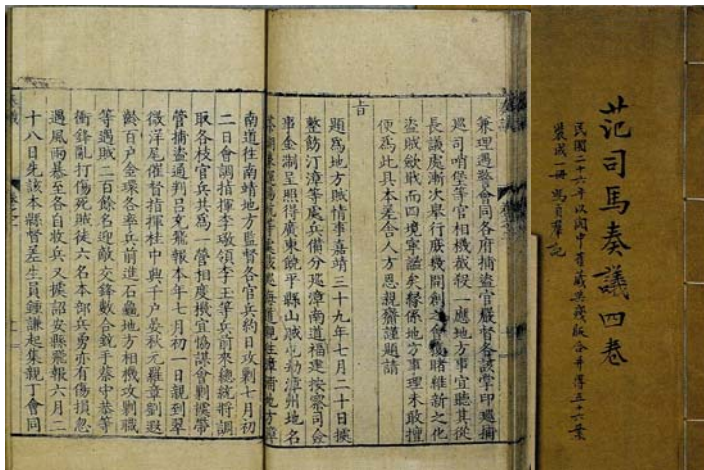 范司馬奏議四卷
民國二十六年以閣中舊藏與殘版合并得五十六葉
裝成一冊 馮貞羣記
兼理遇警會同各府捕盜官嚴督各該掌印巡捕
巡司哨堡等官相機截殺一應地方事宜聽其從
長議處漸次舉行庶機開創之會獲睹維新之化
盜賊斂戢而四境寧謐矣緣係地方事理未敢擅
便爲此具本差舍人方恩親齎謹題請
旨
題爲地方賊情事嘉靖三十九年七月二十日據
整飭汀漳等處兵備分巡漳南道福建按察司僉
事金制呈照得廣東饒平縣山賊屯劫漳州地名
南道往南靖地方監督各官兵約日攻剿七月初
二日會調指揮李墩領李玉等兵前來總統將調
取各枝官兵共爲一營相度機宜協謀會剿據帶
管捕盜通判呂文飛報本年七月初一日親到翠
微洋尾催督指揮桂中興千户晏秋元羅章劉遐
齡百户金環各率兵前進石龜地方相機攻剿職
等遇賊二百餘名迎敵交鋒數合銃手蔡中恭等
衝鋒亂打傷死賊徒六名本部兵勇亦有傷損忽
遇風雨暮至各自收兵又據詔安縣飛報六月二
十八日先該本縣督差生員鍾謙起集親丁會同